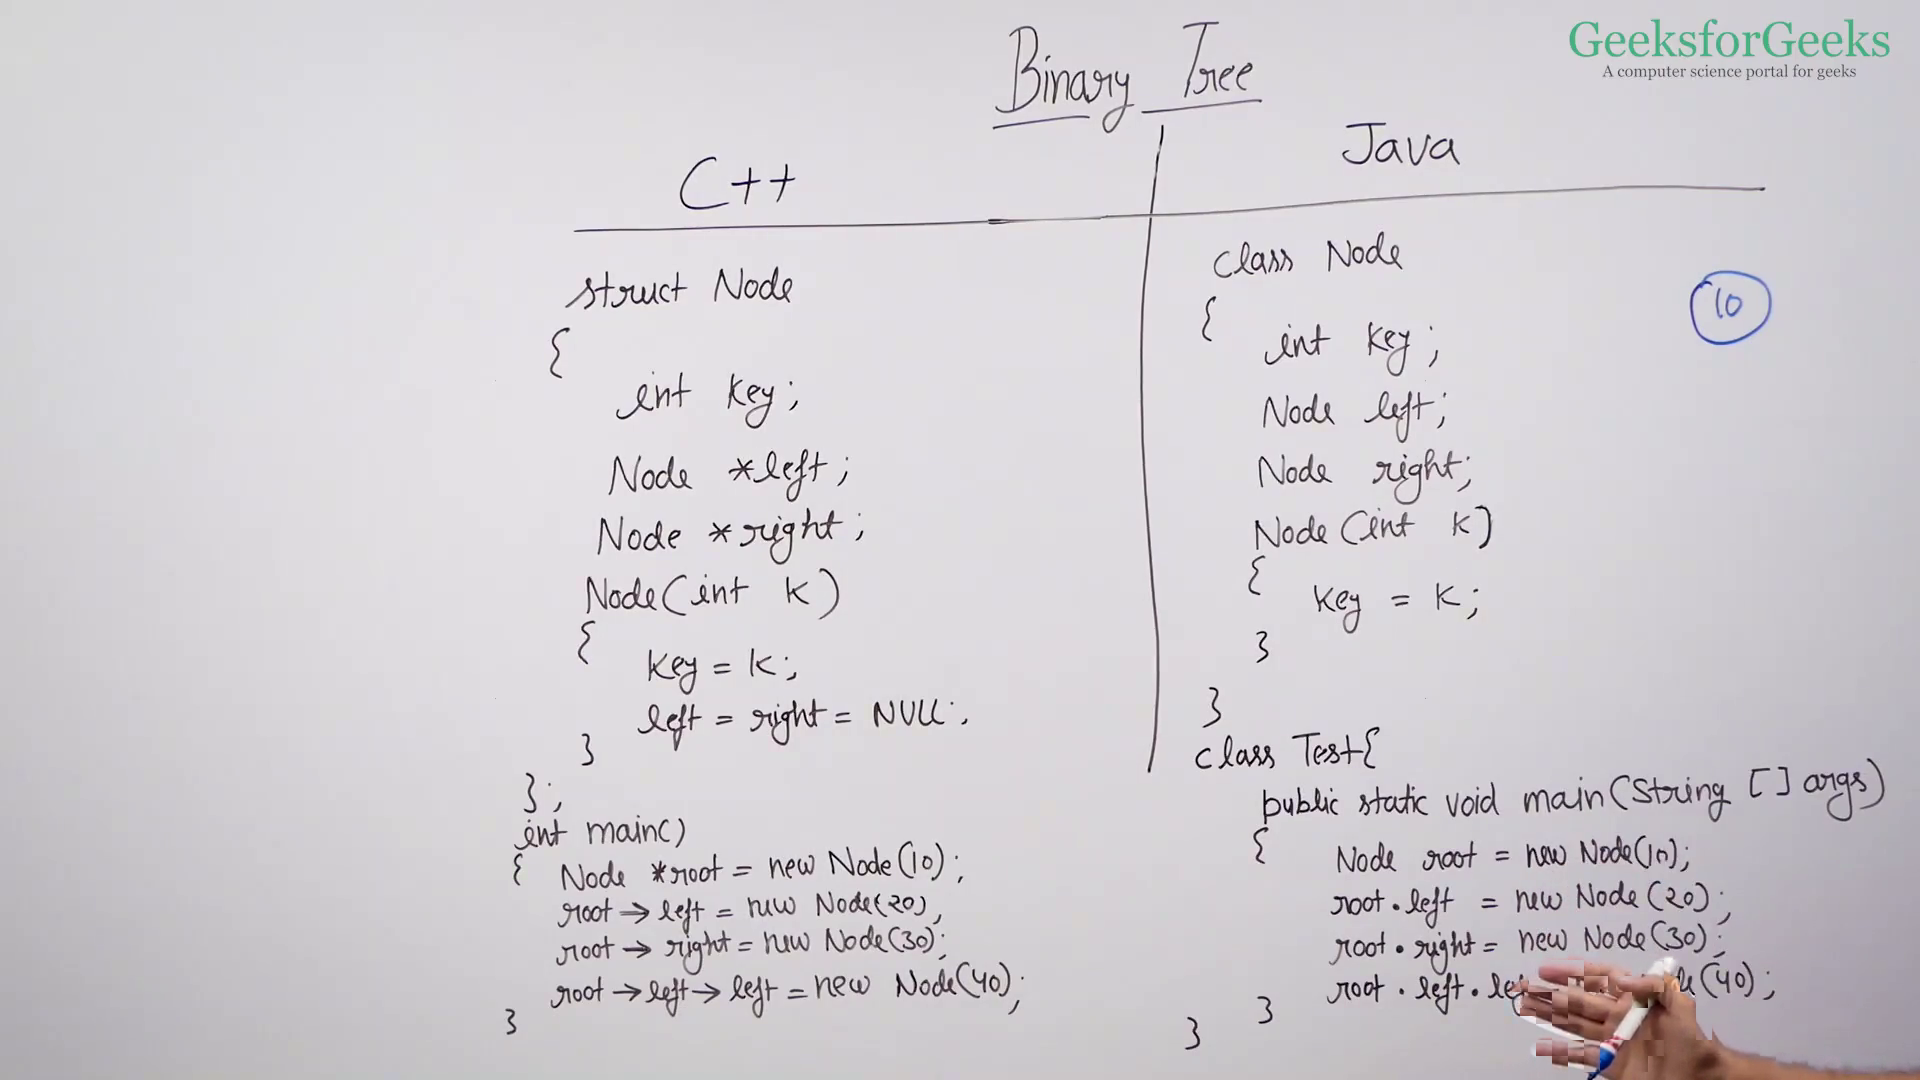 GeeksforGeeks
A computer science portal for geeks
Binary Tree
C++
struct Node
{
int key;
Node *left;
Node *right;
Node(int k)
{
key = k;
left = right = NULL;
}
};
int main()
{ Node *root = new Node(10);
root → left = new Node(20);
root → right = new Node(30);
root → left → left = new Node(40);
}
Java
class Node
{
int key;
Node left;
Node right;
Node(int k)
{
key = k;
}
}
class Test{
public static void main(String [] args)
{
Node root = new Node(10);
root.left = new Node(20);
root.right = new Node(30);
root.left.left (40);
}
}
10